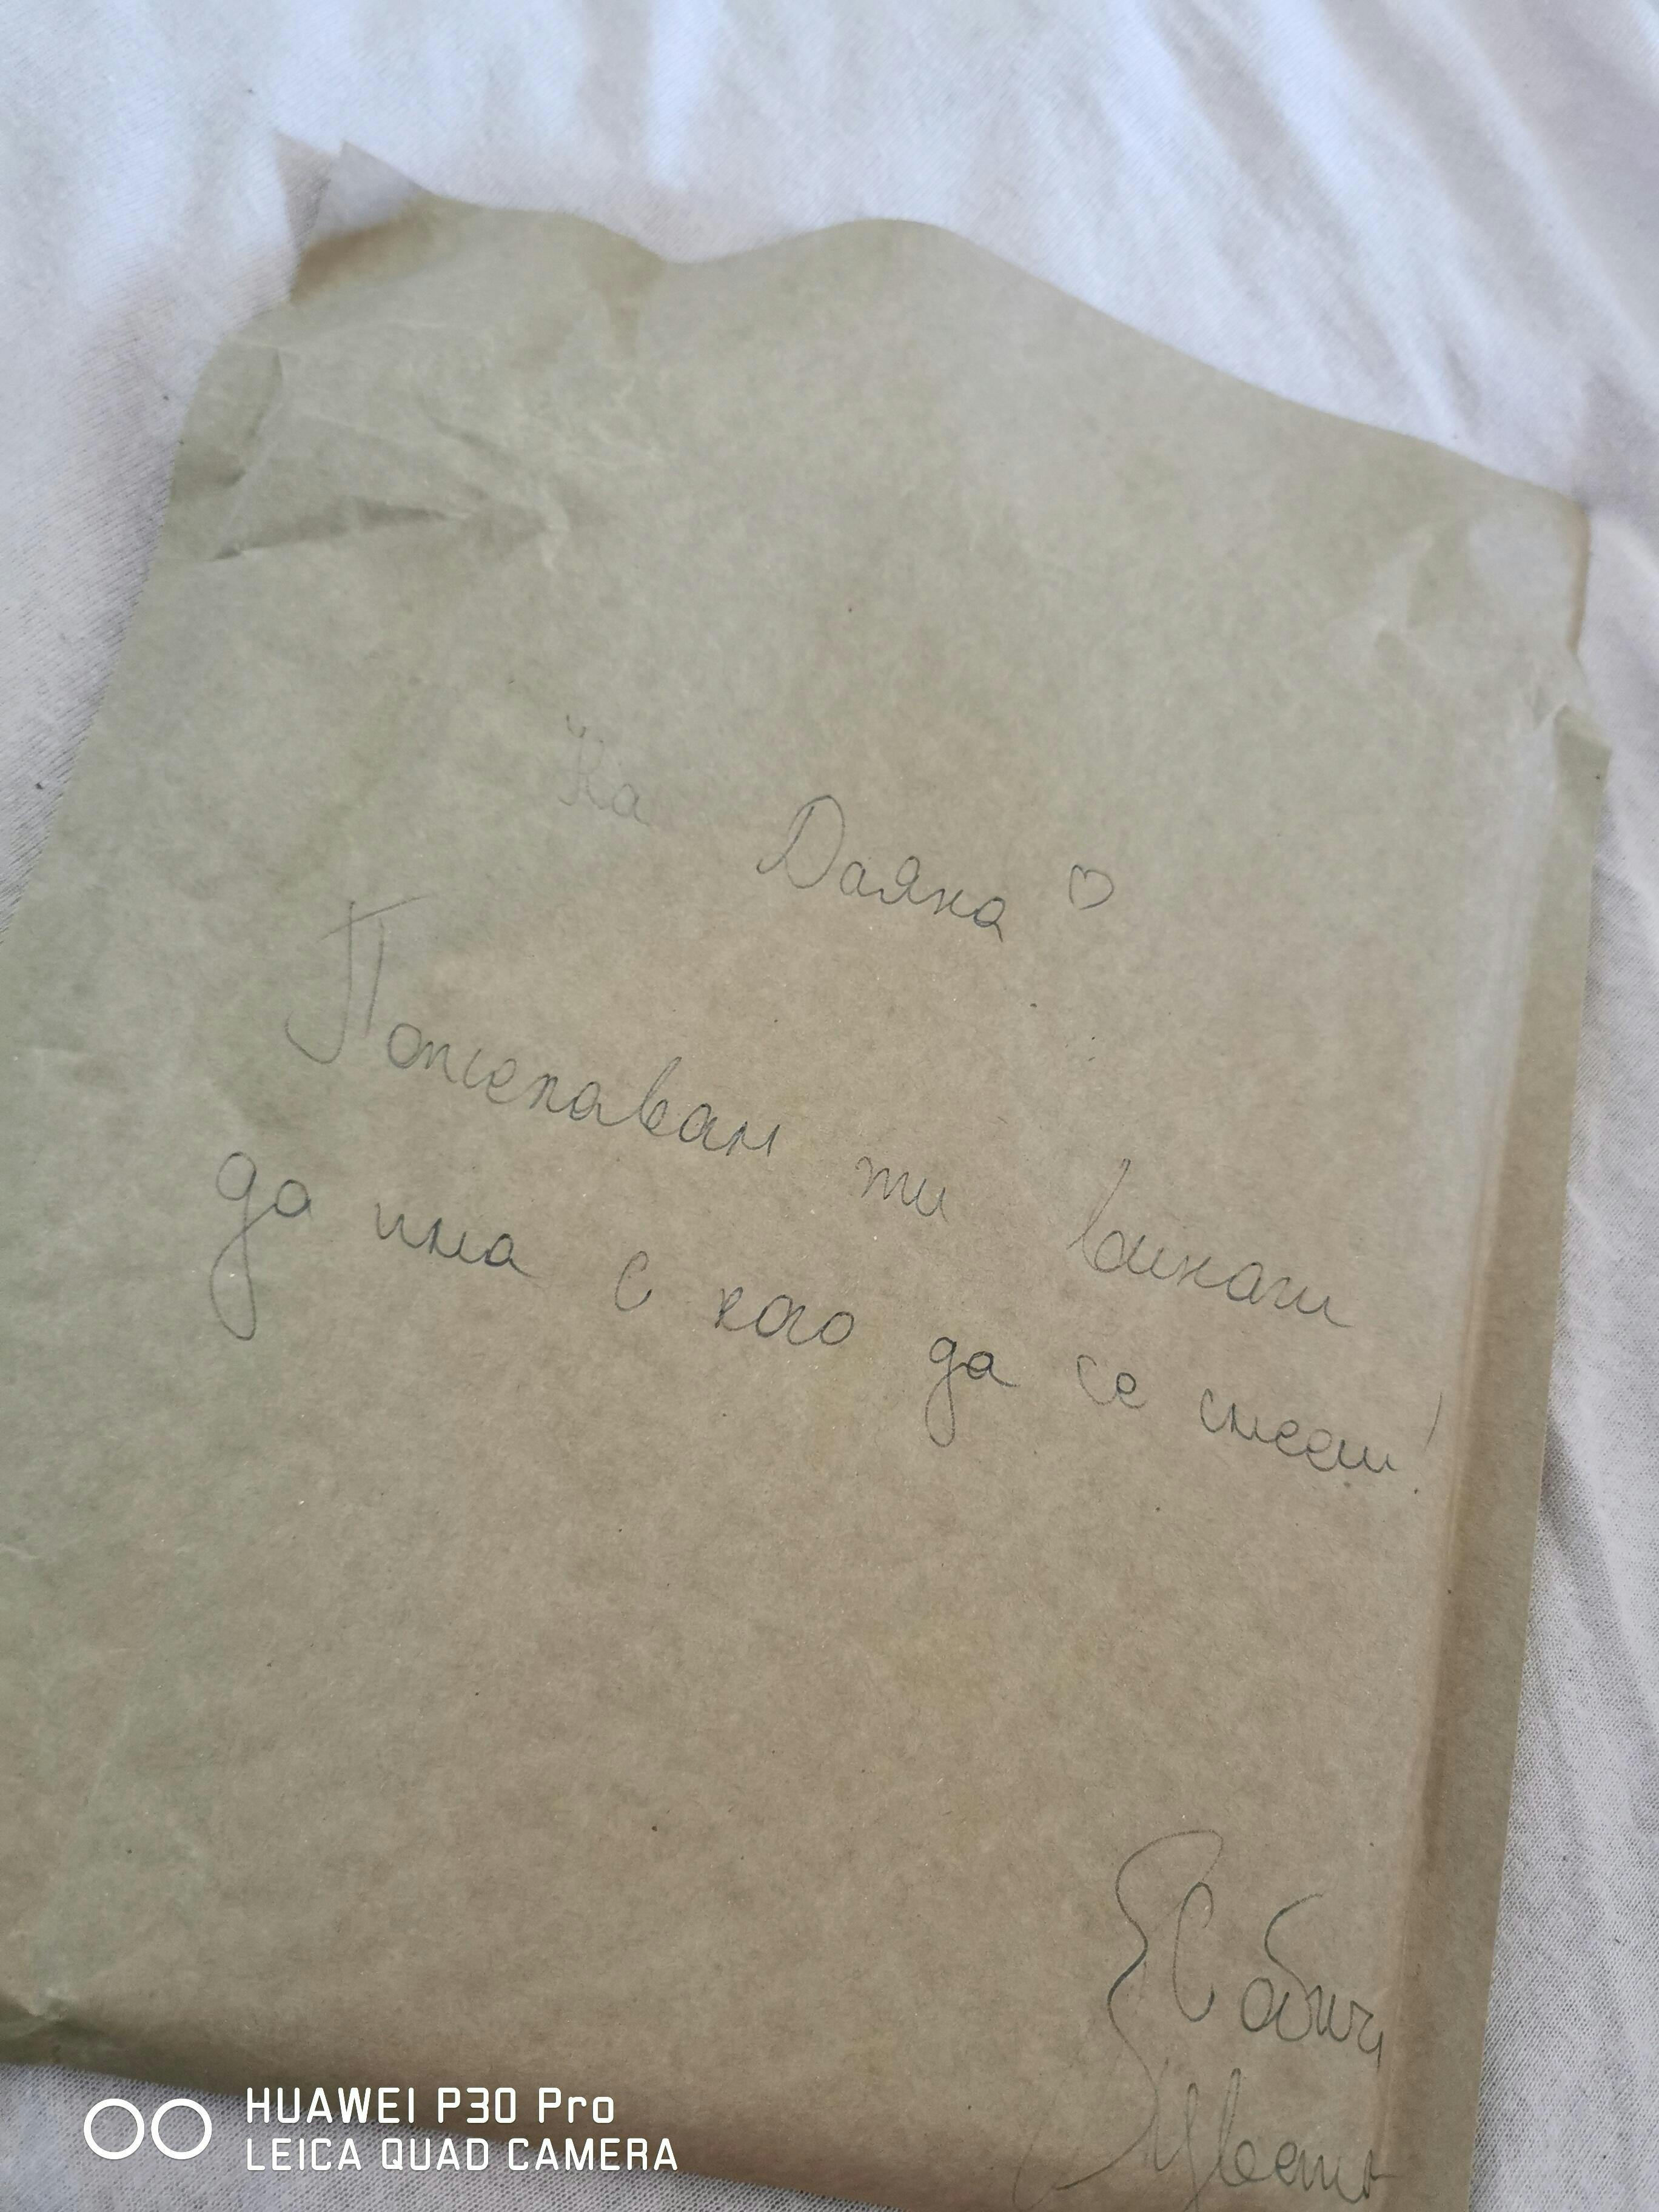 На Даяна ♡
Пожелавам ти винаги
да има с кого да се смееш!
Сабич
HUAWEI P30 Pro
LEICA QUAD CAMERA